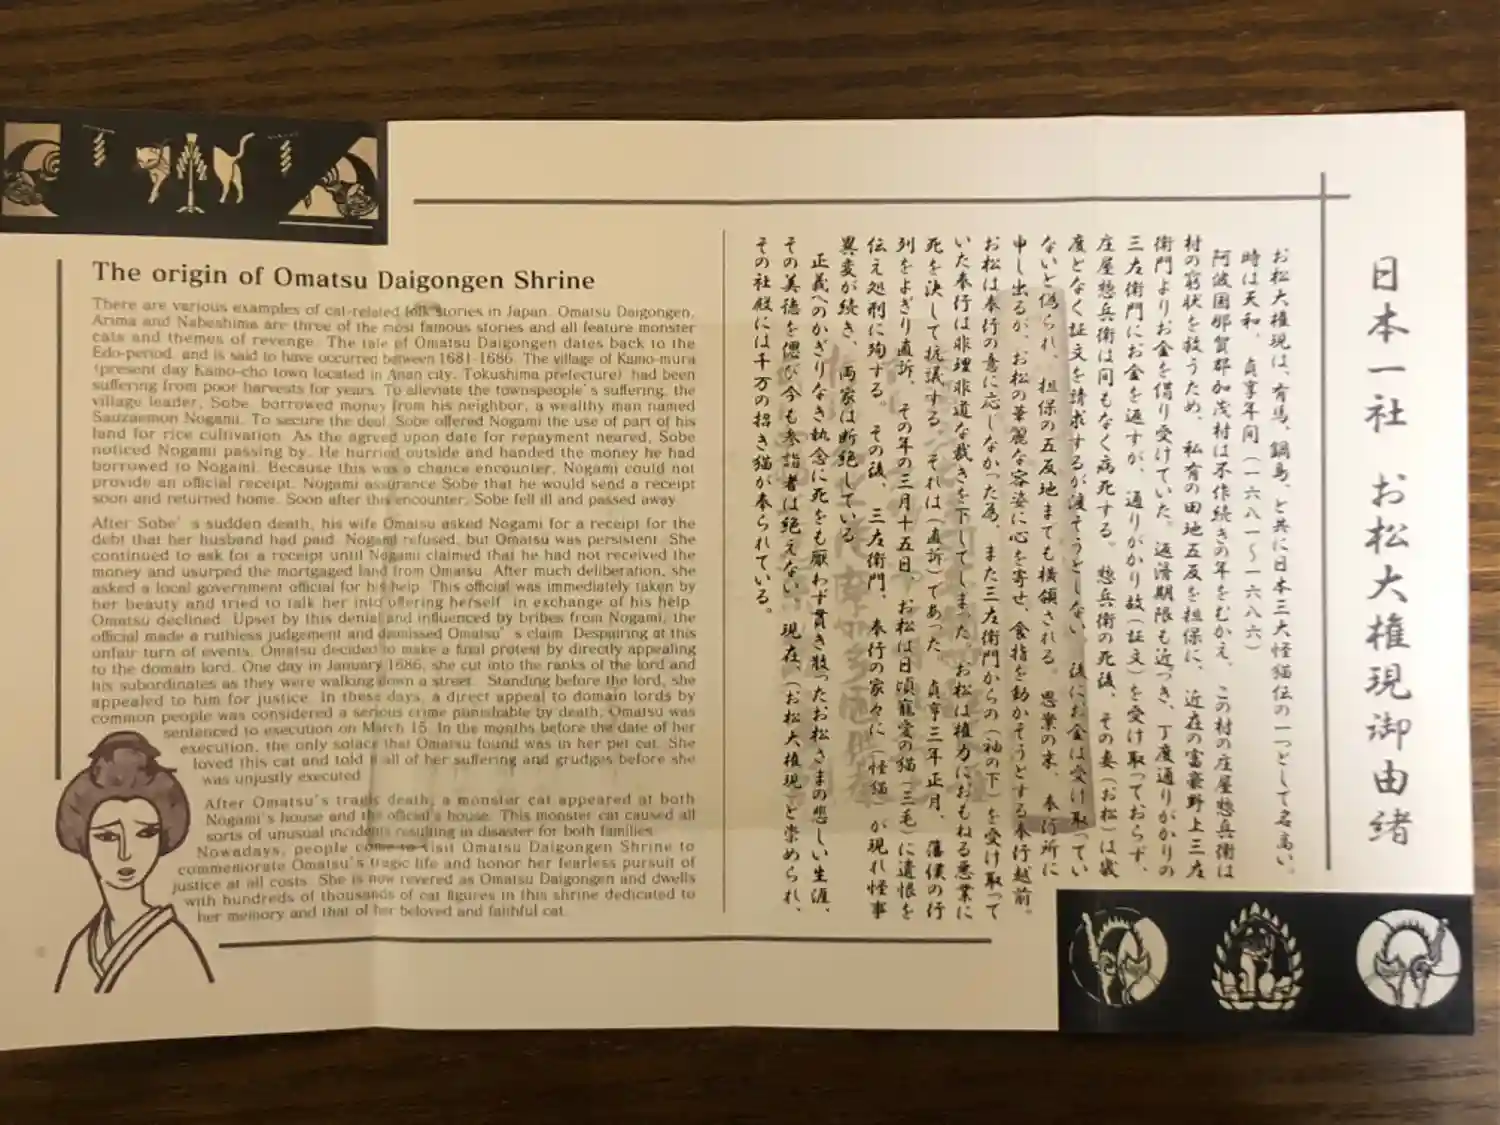 The origin of Omatsu Daigongen Shrine
There are various examples of cat-related folk stories in Japan. Omatsu Daigongen,
Arima and Nabeshima are three of the most famous stories and all feature monster
cats and themes of revenge. The tale of Omatsu Daigongen dates back to the
Edo-period, and is said to have occurred between 1681-1686. The village of Kamo-mura
(present day Kamo-cho town located in Anan city, Tokushima prefecture) had been
suffering from poor harvests for years. To alleviate the townspeople's suffering, the
village leader, Sobe, borrowed money from his neighbor, a wealthy man named
Sauzaemon Nogami. To secure the deal, Sobe offered Nogami the use of part of his
land for rice cultivation. As the agreed upon date for repayment neared, Sobe
noticed Nogami passing by. He hurried outside and handed the money he had
borrowed to Nogami. Because this was a chance encounter, Nogami could not
provide an official receipt. Nogami assurance Sobe that he would send a receipt
soon and returned home. Soon after this encounter, Sobe fell ill and passed away.
After Sobe's sudden death, his wife Omatsu asked Nogami for a receipt for the
debt that her husband had paid. Nogami refused, but Omatsu was persistent. She
continued to ask for a receipt until Nogami claimed that he had not received the
money and usurped the mortgaged land from Omatsu. After much deliberation, she
asked a local government official for his help. This official was immediately taken by
her beauty and tried to talk her into offering herself in exchange of his help.
Omatsu declined. Upset by this denial and influenced by bribes from Nogami, the
official made a ruthless judgement and dismissed Omatsu's claim. Despairing at this
unfair turn of events, Omatsu decided to make a final protest by directly appealing
to the domain lord. One day in January 1686, she cut into the ranks of the lord and
his subordinates as they were walking down a street. Standing before the lord, she
appealed to him for justice. In these days, a direct appeal to domain lords by
common people was considered a serious crime punishable by death; Omatsu was
sentenced to execution on March 15. In the months before the date of her
execution, the only solace that Omatsu found was in her pet cat. She
loved this cat and told it all of her suffering and grudges before she
was unjustly executed.
After Omatsu's tragic death, a monster cat appeared at both
Nogami's house and the official's house. This monster cat caused all
sorts of unusual incidents resulting in disaster for both families.
Nowadays, people come to visit Omatsu Daigongen Shrine to
commemorate Omatsu's tragic life and honor her fearless pursuit of
justice at all costs. She is now revered as Omatsu Daigongen and dwells
with hundreds of thousands of cat figures in this shrine dedicated to
her memory and that of her beloved and faithful cat.
日本一社 お松大権現御由緒
お松大権現は、有馬、鍋島、と共に日本三大怪猫伝の一つとして名高い。
時は天和、貞享年間(一六八一～一六八六)
阿波国那賀郡加茂村は不作続きの年をむかえ、この村の庄屋惣兵衛は
村の窮状を救うため、私有の田地五反を担保に、近在の富豪野上三左
衛門よりお金を借り受けていた。返済期限も近づき、丁度通りがかりの
三左衛門にお金を返すが、通りがかり故(証文)を受け取っておらず、
庄屋惣兵衛は間もなく病死する。惣兵衛の死後、その妻(お松)は幾
度となく証文を請求するが渡そうとしない、後に、お金は受け取ってい
ないと偽られ、担保の五反地までも横領される。思案の末、奉行所に
申し出るが、お松の華麗な容姿に心を寄せ、食指を動かそうとする奉行越前。
お松は奉行の意に応じなかった為、また三左衛門からの(袖の下)を受け取って
いた奉行は非理非道な裁きを下してしまった。お松は権力におもねる悪業に
死を決して抗議する。それは(直訴)であった。貞享三年正月、藩僕の行
列をよぎり直訴、その年の三月十五日、お松は日頃寵愛の猫(三毛)に遺恨を
伝え処刑に殉ずる。その後、三左衛門、奉行の家々に(怪猫)が現れ怪事
異変が続き、両家は断絶している。
正義へのかぎりなき執念に死をも厭わず貫き散ったお松さまの悲しい生涯、
その美徳を偲び今も参詣者は絶えない。現在、(お松大権現)と崇められ、
その社殿には千万の招き猫が奉られている。